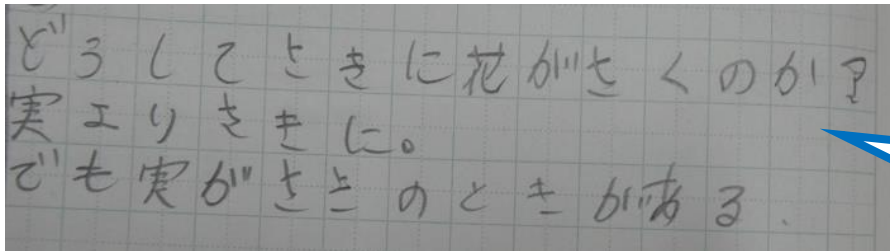 どうしてさきに花がさくのか?
実よりさきに。
でも実がさきのときがある.